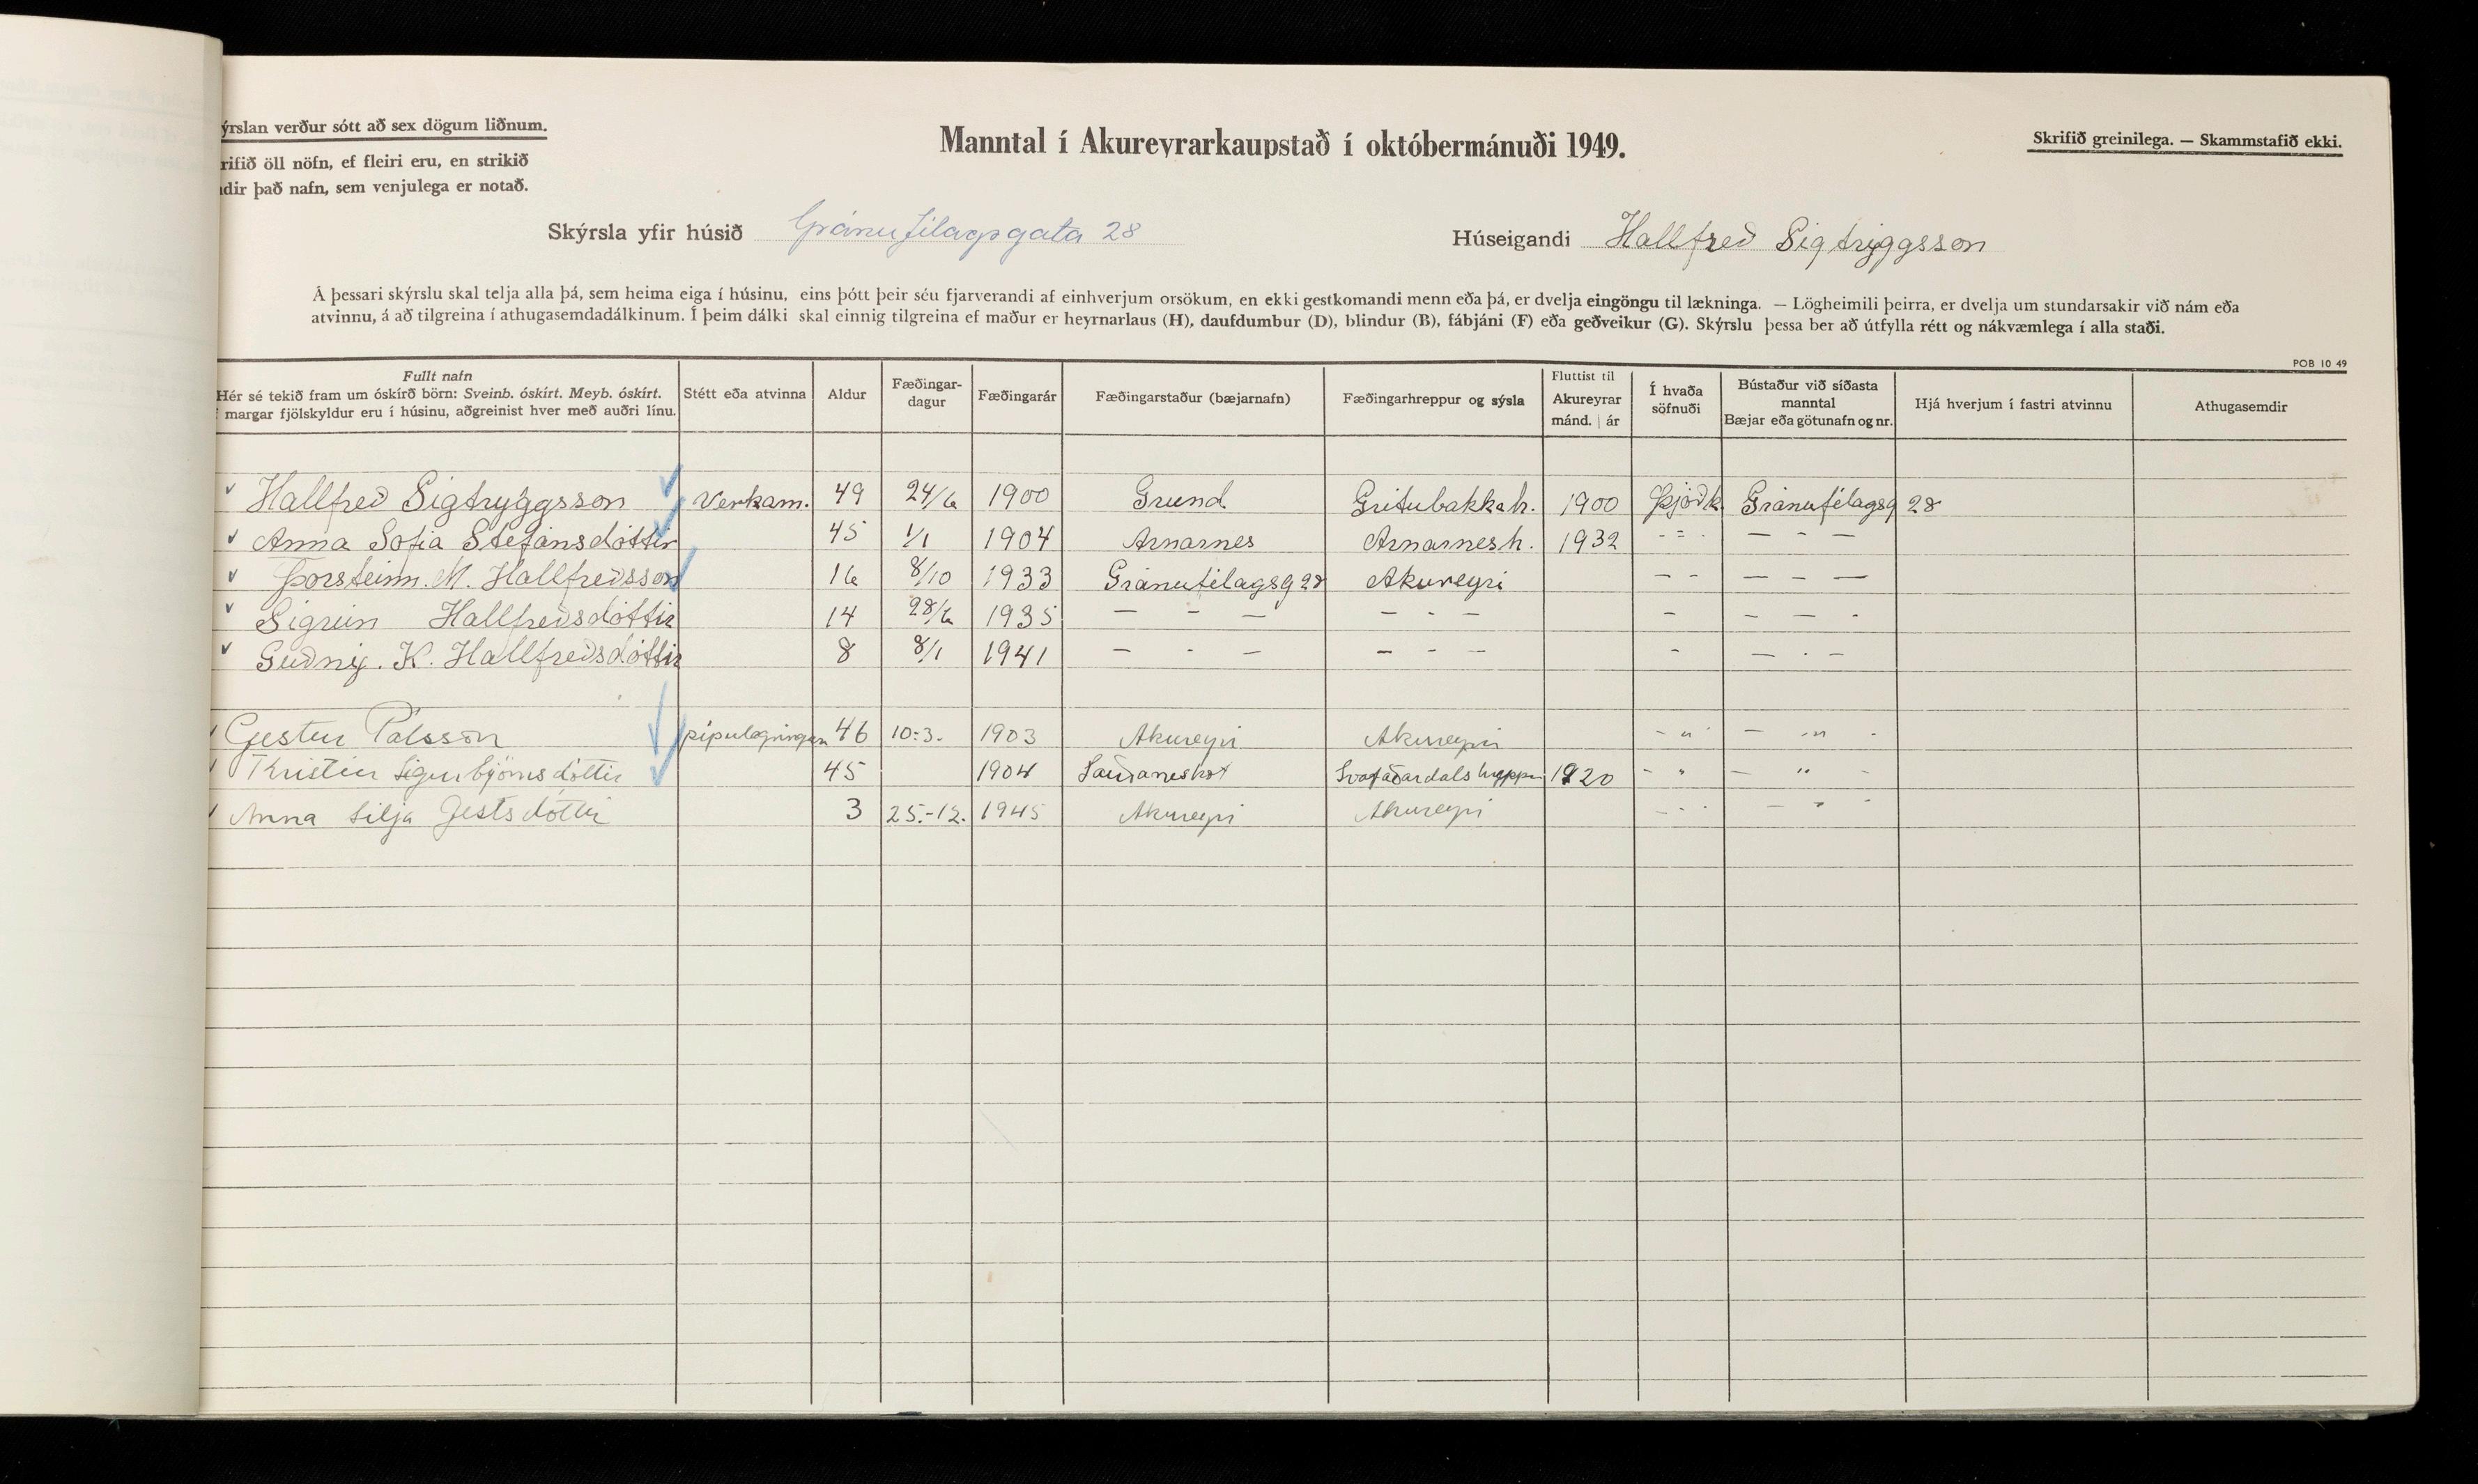 ýrslan verður sótt að sex dögum liðnum.
rifið öll nöfn, ef fleiri eru, en strikið
dir það nafn, sem venjulega er notað.
Manntal í Akureyrarkaupstað í októbermánuði 1949.
Skrifið greinilega. — Skammstafið ekki.
Skýrsla yfir húsið Gránufélagsgata 28
Húseigandi Hallfreð Sigtryggsson
Á þessari skýrslu skal telja alla þá, sem heima eiga í húsinu, eins þótt þeir séu fjarverandi af einhverjum orsökum, en ekki gestkomandi menn eða þá, er dvelja eingöngu til lækninga. — Lögheimili þeirra, er dvelja um stundarsakir við nám eða
atvinnu, á að tilgreina í athugasemdadálkinum. Í þeim dálki skal einnig tilgreina ef maður er heyrnarlaus (H), daufdumbur (D), blindur (B), fábjáni (F) eða geðveikur (G). Skýrslu þessa ber að útfylla rétt og nákvæmlega í alla staði.
POB 10 49
Fullt nafn
Hér sé tekið fram um óskírð börn: Sveinb. óskírt. Meyb. óskírt.
margar fjölskyldur eru í húsinu, aðgreinist hver með auðri línu.
Stétt eða atvinna
Aldur
Fæðingar-
dagur
Fæðingarár
Fæðingarstaður (bæjarnafn)
Fæðingarhreppur og sýsla
Fluttist til
Akureyrar
mánd. | ár
Í hvaða
söfnuði
Bústaður við síðasta
manntal
Bæjar eða götunafn og nr.
Hjá hverjum í fastri atvinnu
Athugasemdir
Hallfreð Sigtryggsson Verkam. 49 24/6 1900 Grund Grítubakkah. 1900 Þjóðk Gránufélagsg 28
Anna Sofia Stefánsdóttir 45 1/1 1904 Arnarnes Arnarnesh. 1932 - = - — - —
Þorsteinn. M. Hallfreðsson 16 8/10 1933 Gránufélagsg 28 Akureyri — - — — —
Sigrún Hallfreðsdóttir 14 28/6 1935 — - — - - - — — — -
Guðný. K. Hallfreðsdóttir 8 8/1 1941 — - — — - — - — - —
Gestur Pálsson pípulagningam 46 10.-3. 1903 Akureyri Akureyri - " - — " -
Kristín Sigurbjörnsdóttir 45 1904 Sauðaneskot Svafaðardalshreppur 1920 - " — " -
Anna Lilja Gestsdóttir 3 25.-12. 1945 Akureyri Akureyri - - - — " -